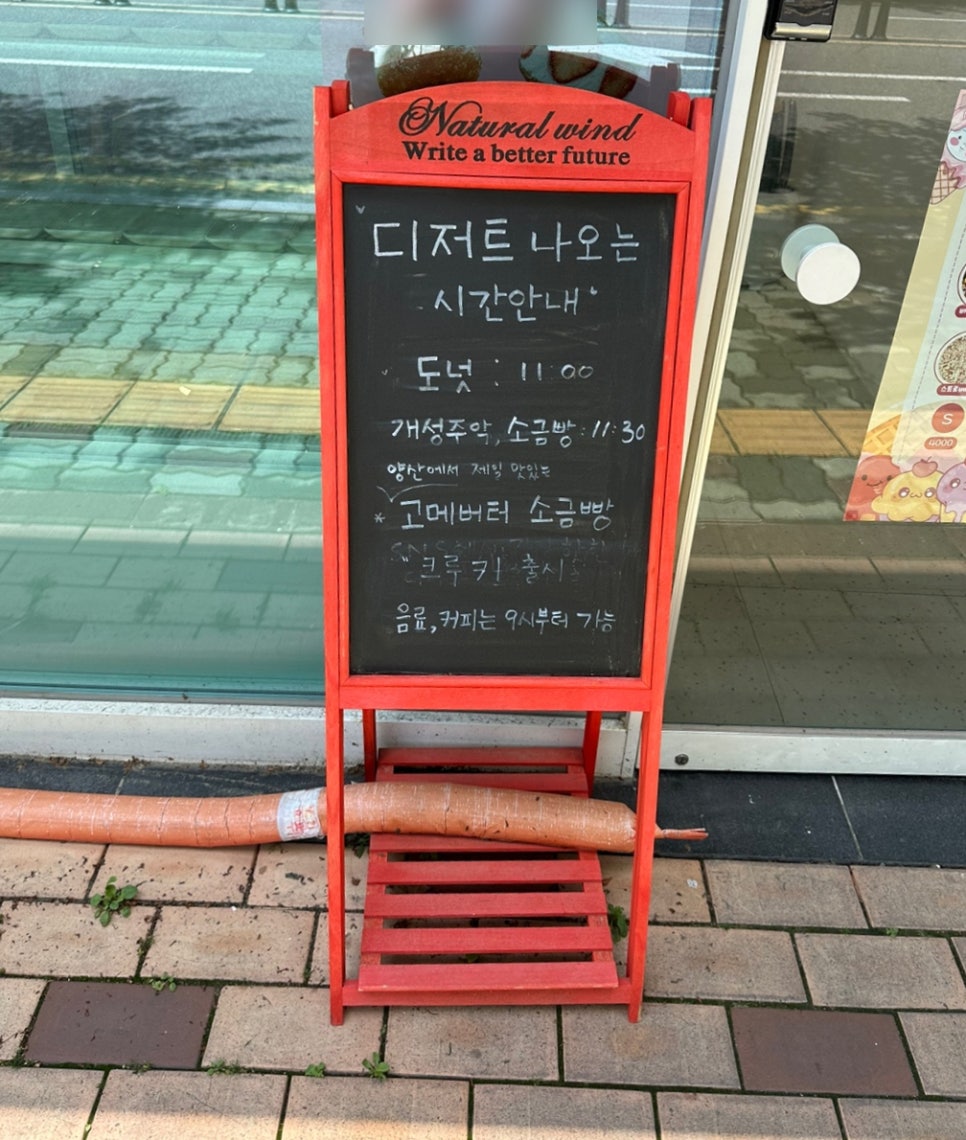 Natural wind
Write a better future
디저트 나오는
시간안내
도넛 : 11:00
개성주악, 소금빵 : 11:30
양산에서 제일 맛있는
* 고메버터 소금빵
크루키 출시
음료, 커피는 9시부터 가능
S
4000